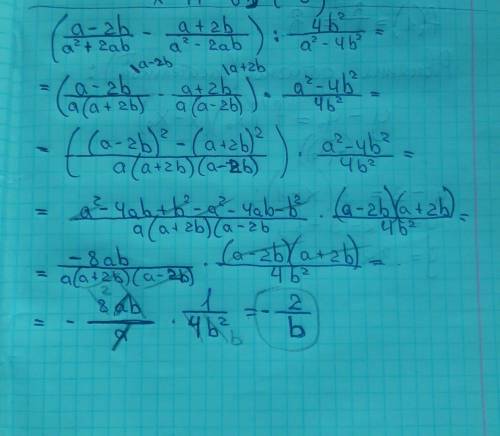 ((a-2b)/(a²+2ab) - (a+2b)/(a²-2ab)) : 4b²/(a²-4b²) =
= ((a-2b)/(a(a+2b)) \a-2b - (a+2b)/(a(a-2b)) \a+2b) · (a²-4b²)/4b² =
= (((a-2b)² - (a+2b)²)/(a(a+2b)(a-2b))) · (a²-4b²)/4b² =
= (a²-4ab+b²-a²-4ab-b²)/(a(a+2b)(a-2b) · (a-2b)(a+2b)/4b² =
= -8ab/(a(a+2b)(a-2b)) · (a-2b)(a+2b)/4b² =
= - 2 8ab/a · 1/4b² b = - 2/b